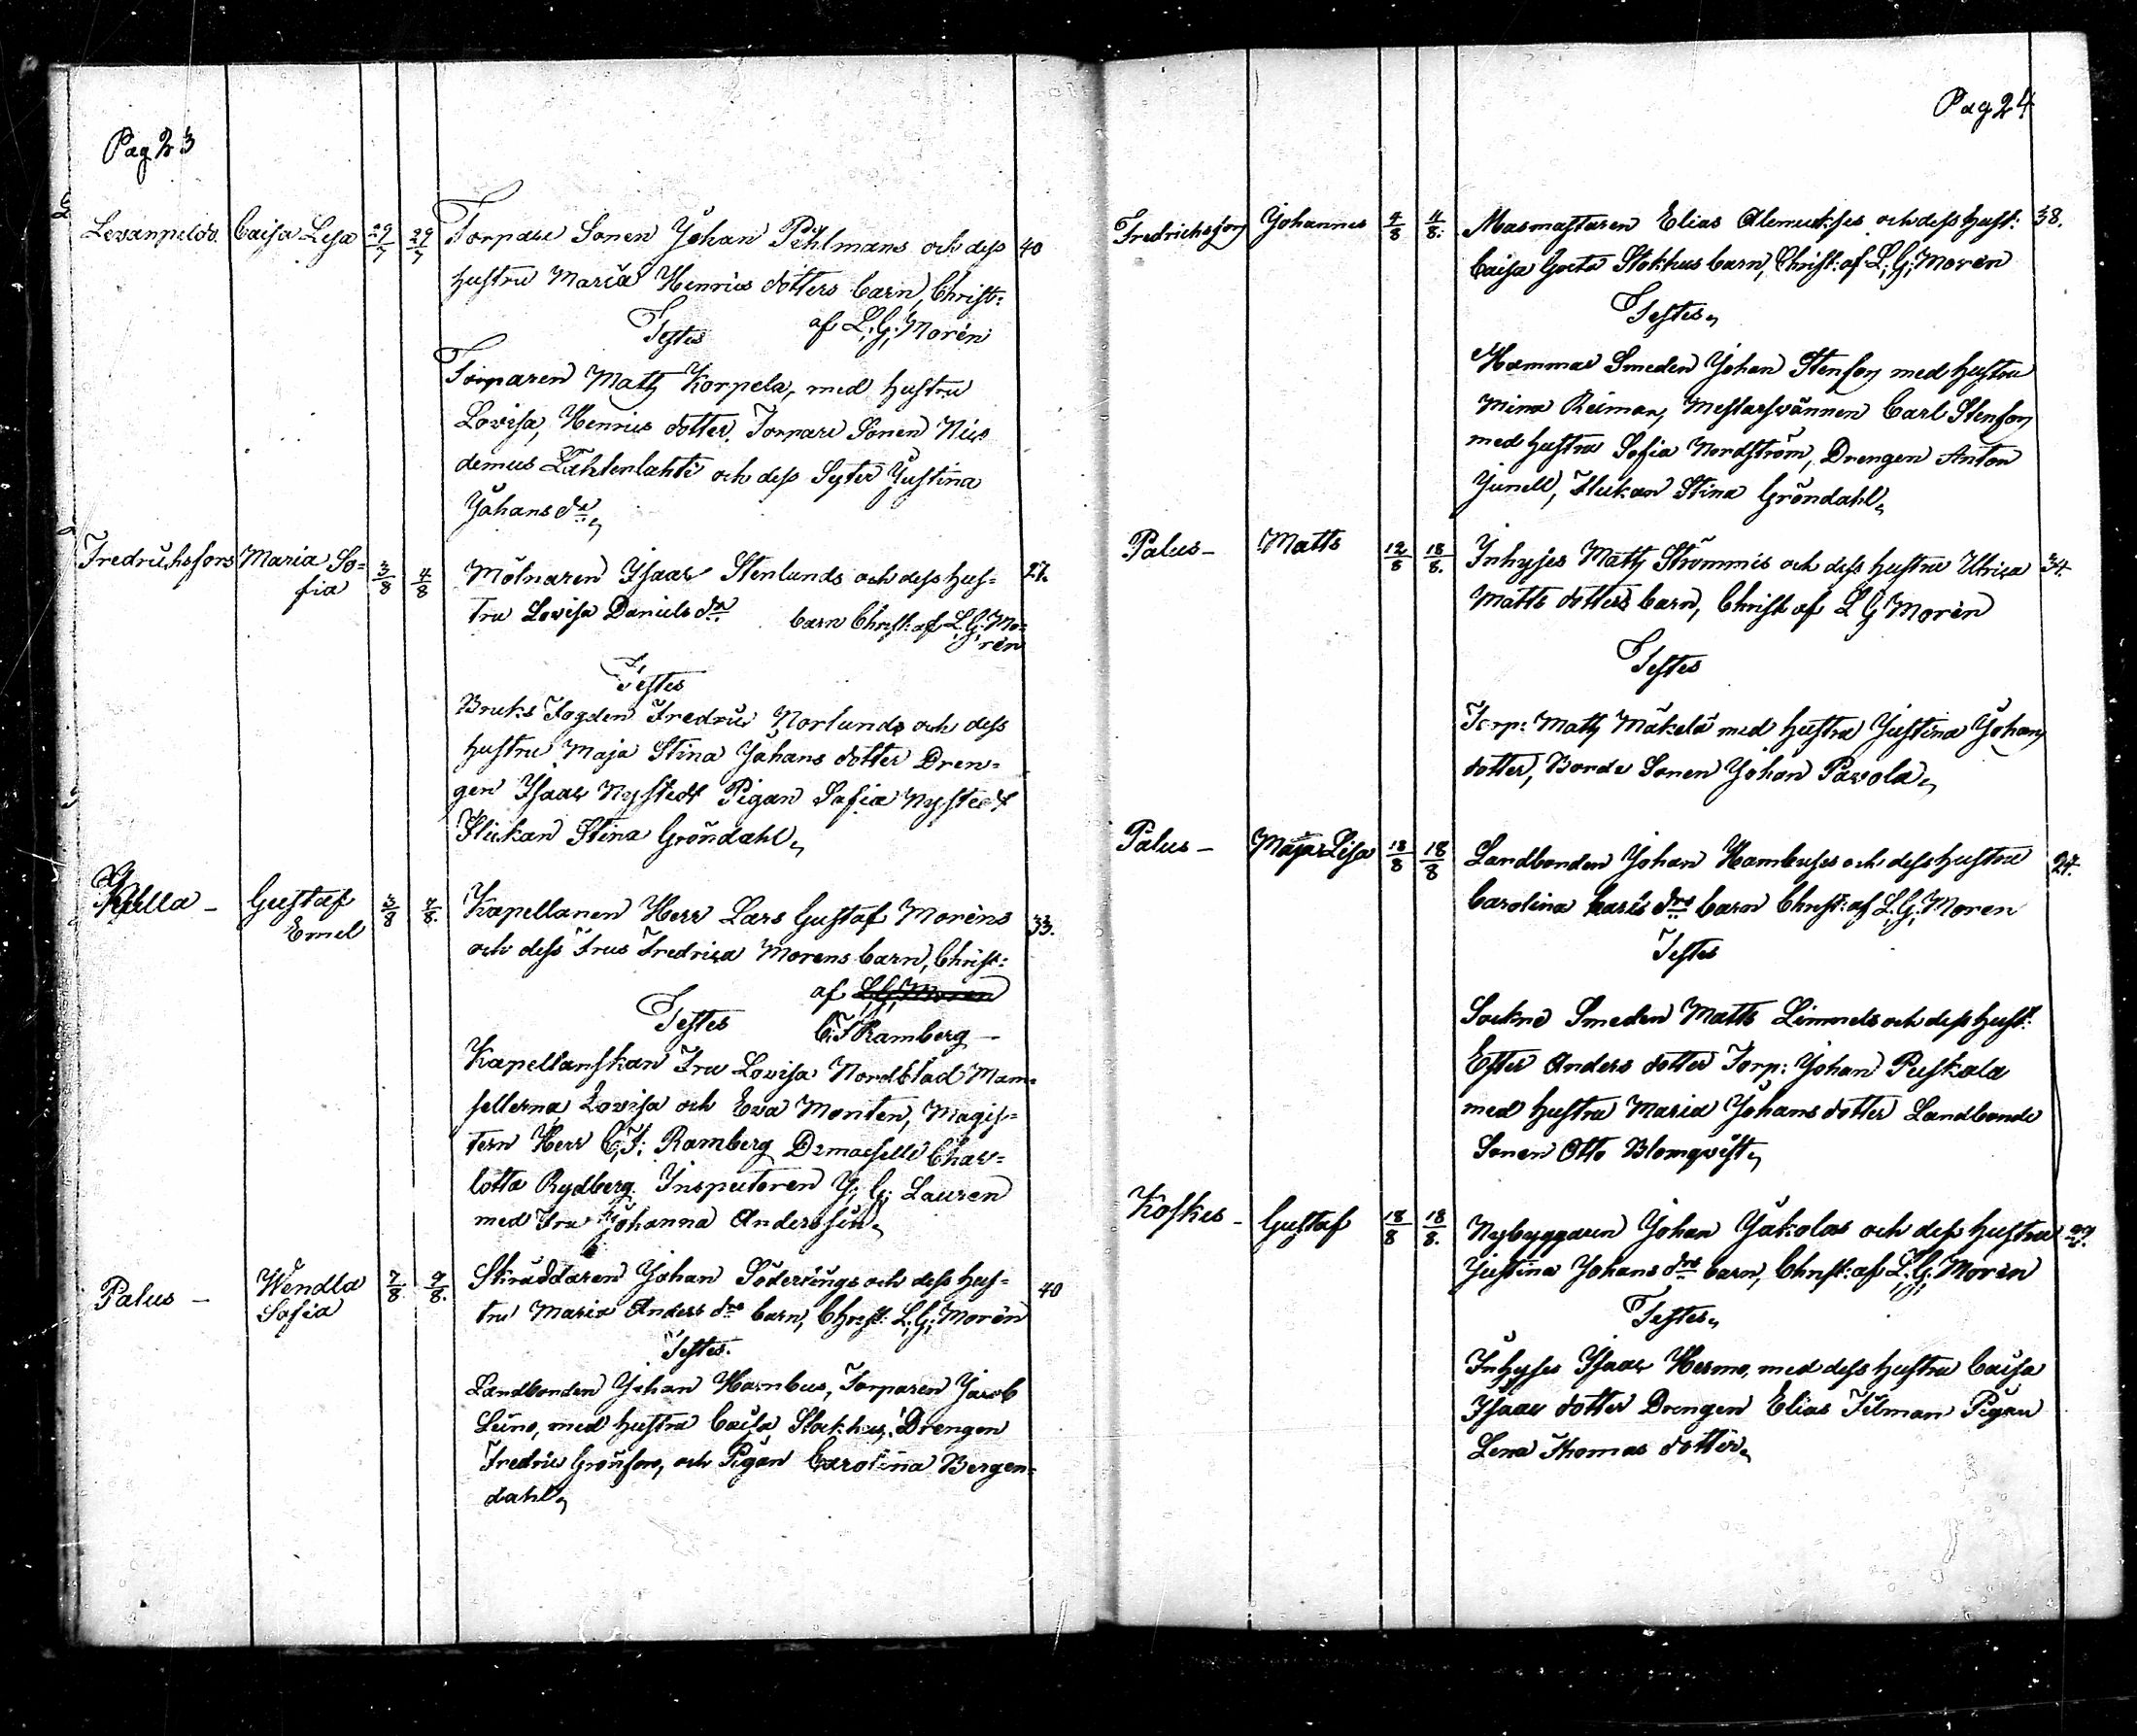 Pag 23
Levanpeldo. Caisa Lisa 29/7 29/7 Torpare Sonen Johan Pihlmans och dess 40
hustru Maria Henrics dotters barn, Christ:
Testes af L. G. Morén
Torparen Matts Korpela, med hustru
Lovisa, Henrics dotter, Torpare Sonen Nico
demus Lähtenlahti och dess Syster Justina
Johans dr
Fredrichsfors Maria So= 3/8 4/8 Mölnaren Isaac Stenlunds och dess hus= 27.
fia tru Lovisa Daniels dr barn Christ: af L. G. Mo=
rén
Testes
Bruks Fogden Fredric Norlunds och dess
hustru Maja Stina Johans dotter Dren=
gen Isaac Nystedt Pigan Sofia Nystedt
Flickan Stina Gröndahl
Kylla - Gustaf 3/8 7/8. Kapellanen Herr Lars Gustaf Moréns 33.
Emel och dess Frus Fredrica Morens barn, Christ:
af L. G. Moren
Testes C. F. Ramberg -
Kapellanskan Fru Lovisa Nordblad Mam=
sellerna Lovisa och Eva Montén, Magis=
tern Herr C. F. Ramberg Demoiselle Char=
lotta Rydberg. Inspectoren J. G. Lauren
med Fru Johanna Anderssin
Palus - Wendla 7/8 9/8. Skräddaren Johan Söderlings och dess hus= 40
Sofia tru Maria Anders drs barn, Christ: L. G. Morén
Testes.
Landbonden Johan Hambus, Torparen Jacob
Leino, med hustru Caisa Stockhus, Drengen
Fredric Grönfors, och Pigan Carolina Bergen=
dahl
Pag 24
Fredrichsfors Johannes 4/8 11/8. Masmastaren Elias Alenii och dess hust: 38.
Caisa Greta Stokhus barn, Christ: af L. G. Morén
Testes
Hammar Smeden Johan Stenfors med hustru
Mina Reiman, Mestarsvännen Carl Stenfors
med hustru Sofia Nordström, Drengen Anton
Junell, Flickan Stina Gröndahl
Palus - Matts 12/8 18/8. Inhyses Matts Strömmis och dess hustru Ulrica 34.
Matts dotters barn, Christ af L G Morén
Testes
Torp: Matts Mäkelä med hustru Justina Johans
dotter, Bonde Sonen Johan Pavola
Palus - Maja Lisa 18/8 18/8 Landbonden Johan Hambuses och dess hustru 24.
Carolina Carls drs barn Christ: af L. G. Moren
Testes
Sockne Smeden Matts Limnels och dess hust:
Ester Anders dotter Torp: Johan Puskala
med hustru Maria Johans dotter Landbonde
Sonen Otto Blomqvist
Koskes - Gustaf 18/8 18/8. Nybyggaren Johan Jakolas och dess hustru
Justina Johans drs barn, Christ: af L. G. Morén
Testes
Inhyses Isaac Hermo, med dess hustru Caisa
Isaac dotter Drengen Elias Filman Pigan
Lena Thomas dotter